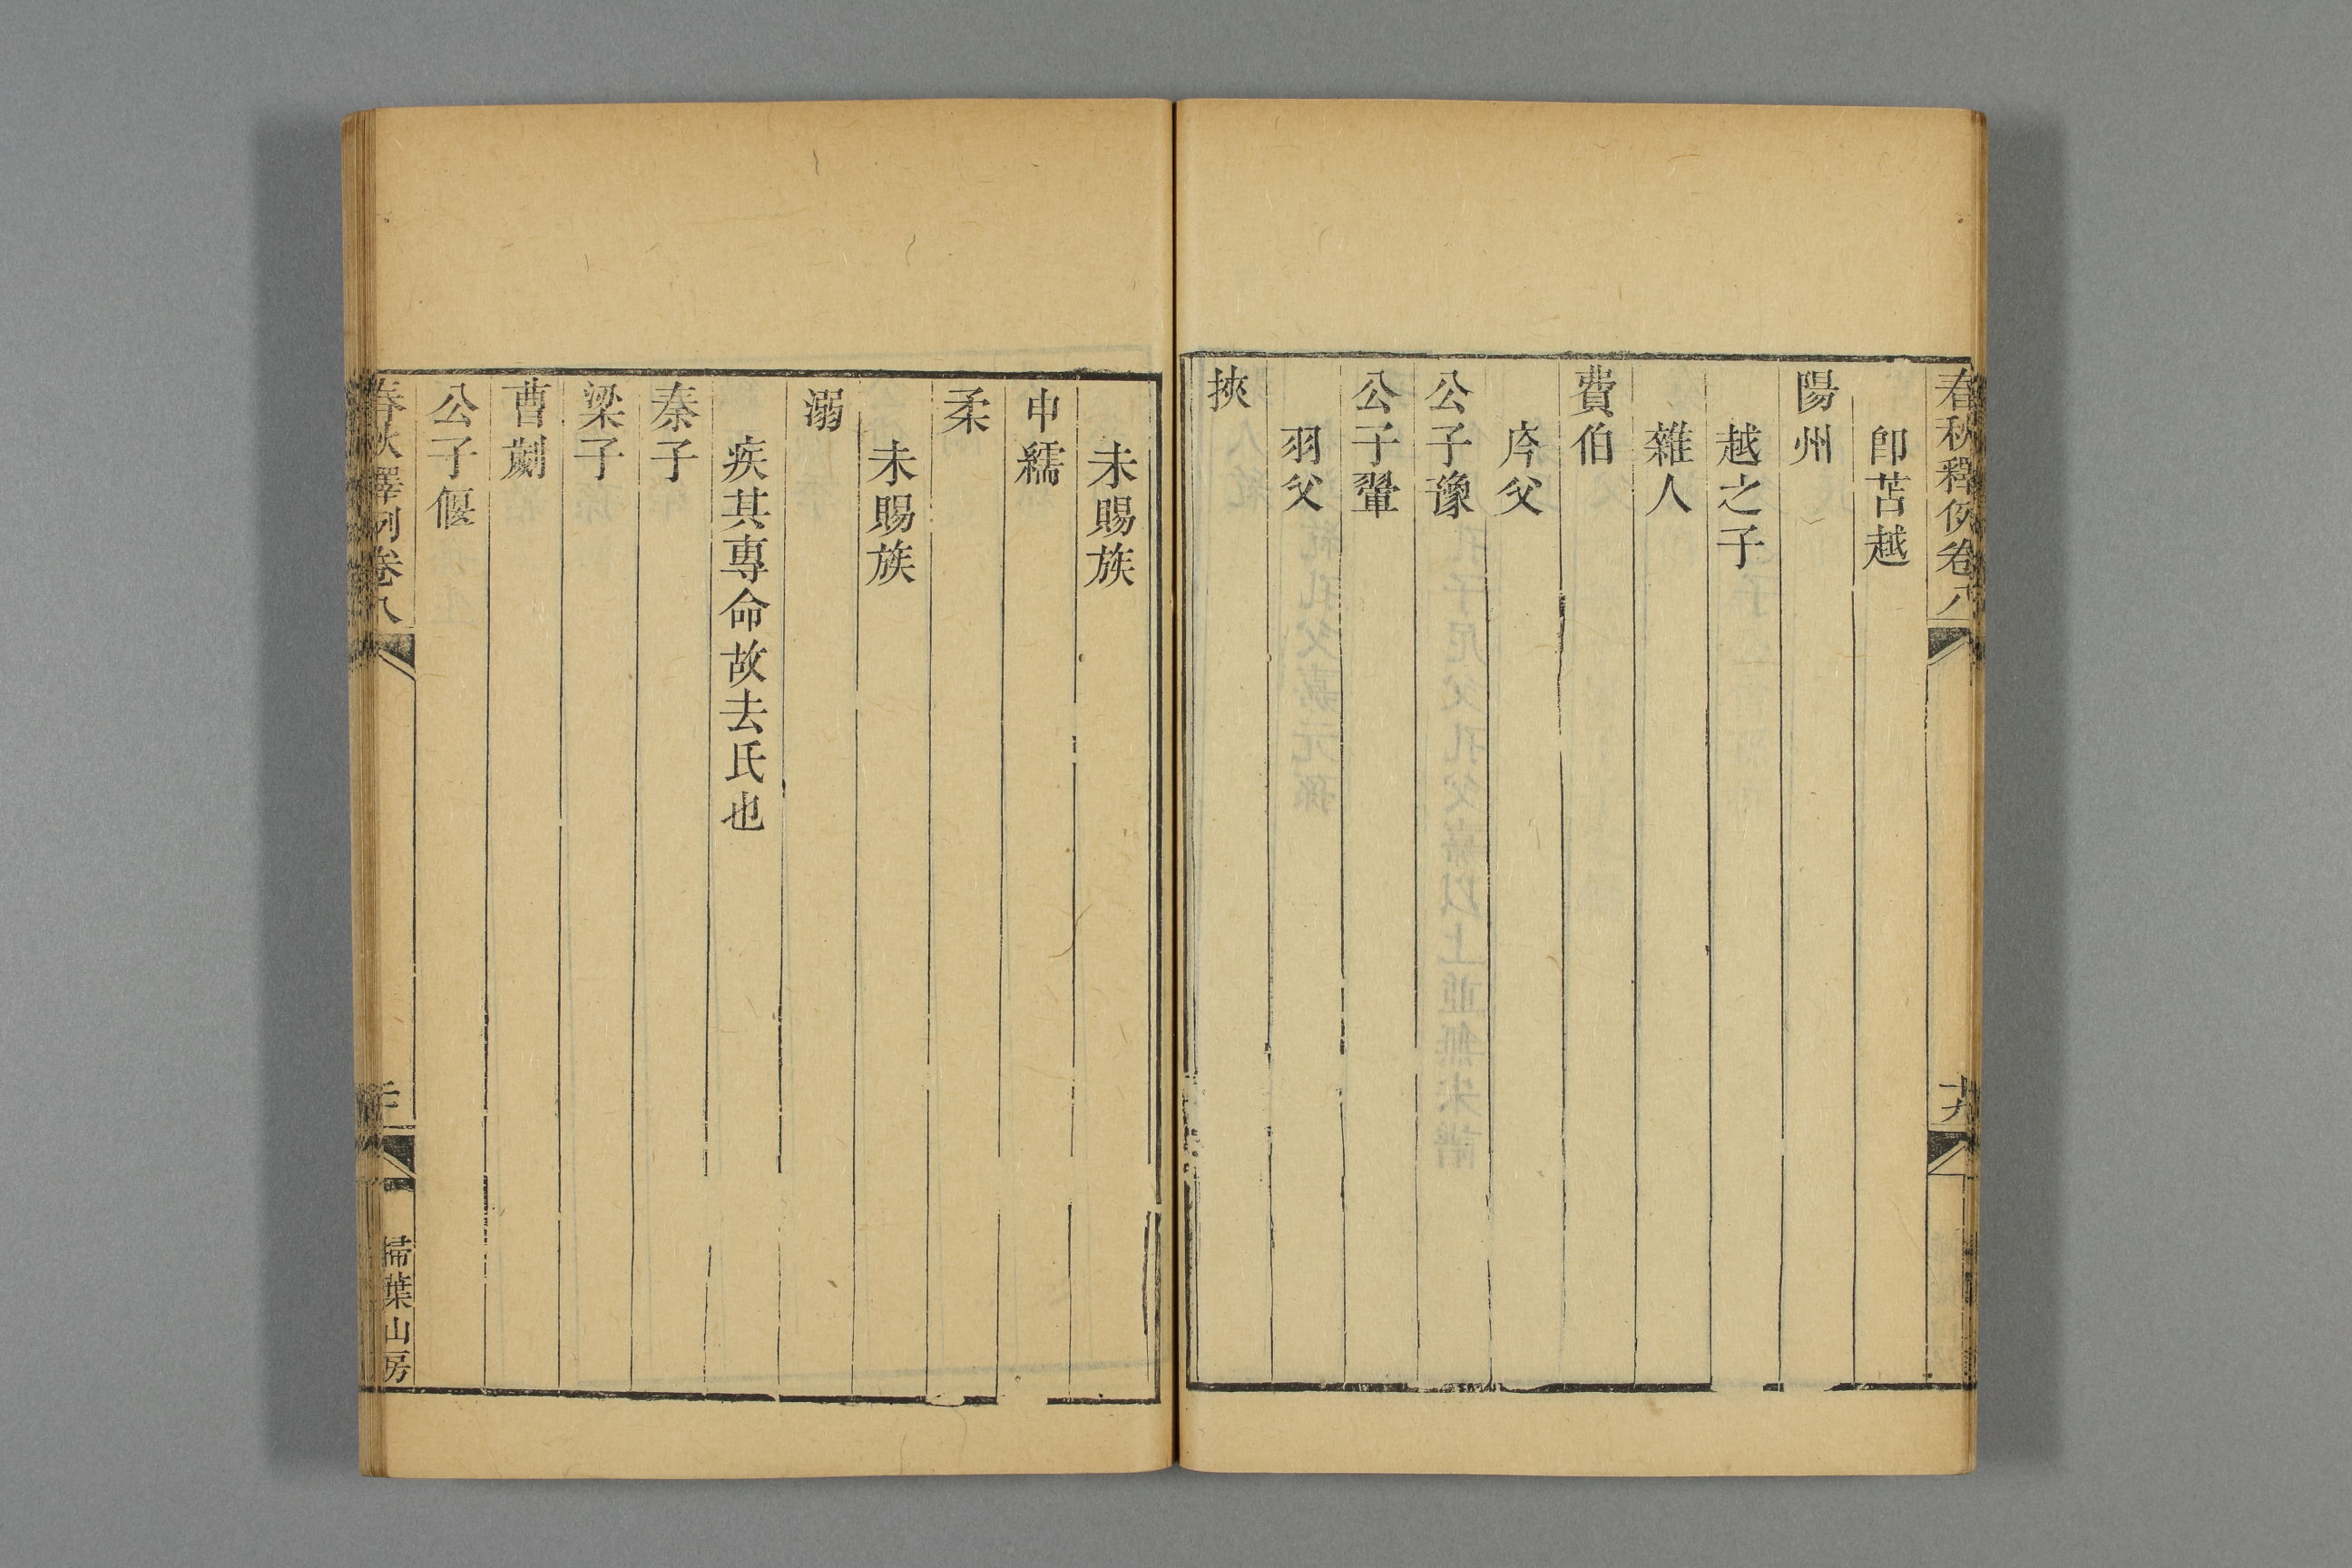 春秋釋例卷八
十九
卽苦越
陽州
越之子
雜人
費伯
庈父
公子豫
公子翬
羽父
挾
未賜族
申繻
柔
未賜族
溺
疾其專命故去氏也
秦子
梁子
曹劌
公子偃
春秋釋例卷八
二十
掃葉山房